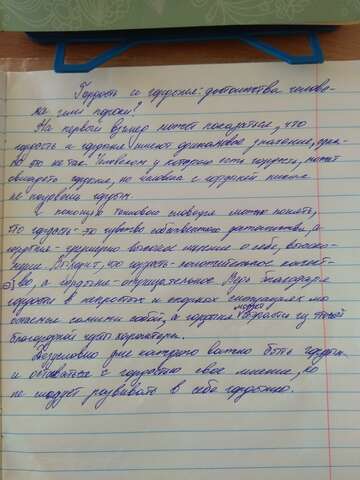 Гордость и гордыня: достоинства челове-
ка или пороки?
На первый взгляд может показаться, что
гордость и гордыня имеют одинаковое значение, одна-
ко это не так. Человеком у которого есть гордость, может
овладеть гордыня, но человека с гордыней никогда
не покровом гордость.
С помощью толкового словаря можно понять,
что гордость - это чувство собственного достоинства, а
гордыня - чрезмерно высокое мнение о себе, высоко-
мерие. Выходит, что гордость - положительное качест-
во, а гордыня - отрицательное. Ведь благодаря
гордости в непростых и сложных ситуациях мы
остаёмся самими собой, а гордыня может
благородной черты характера.
Безусловно для каждого важно быть гордым
и оставаться с гордостью свое мнение, но
не следует развивать в себе гордыню.